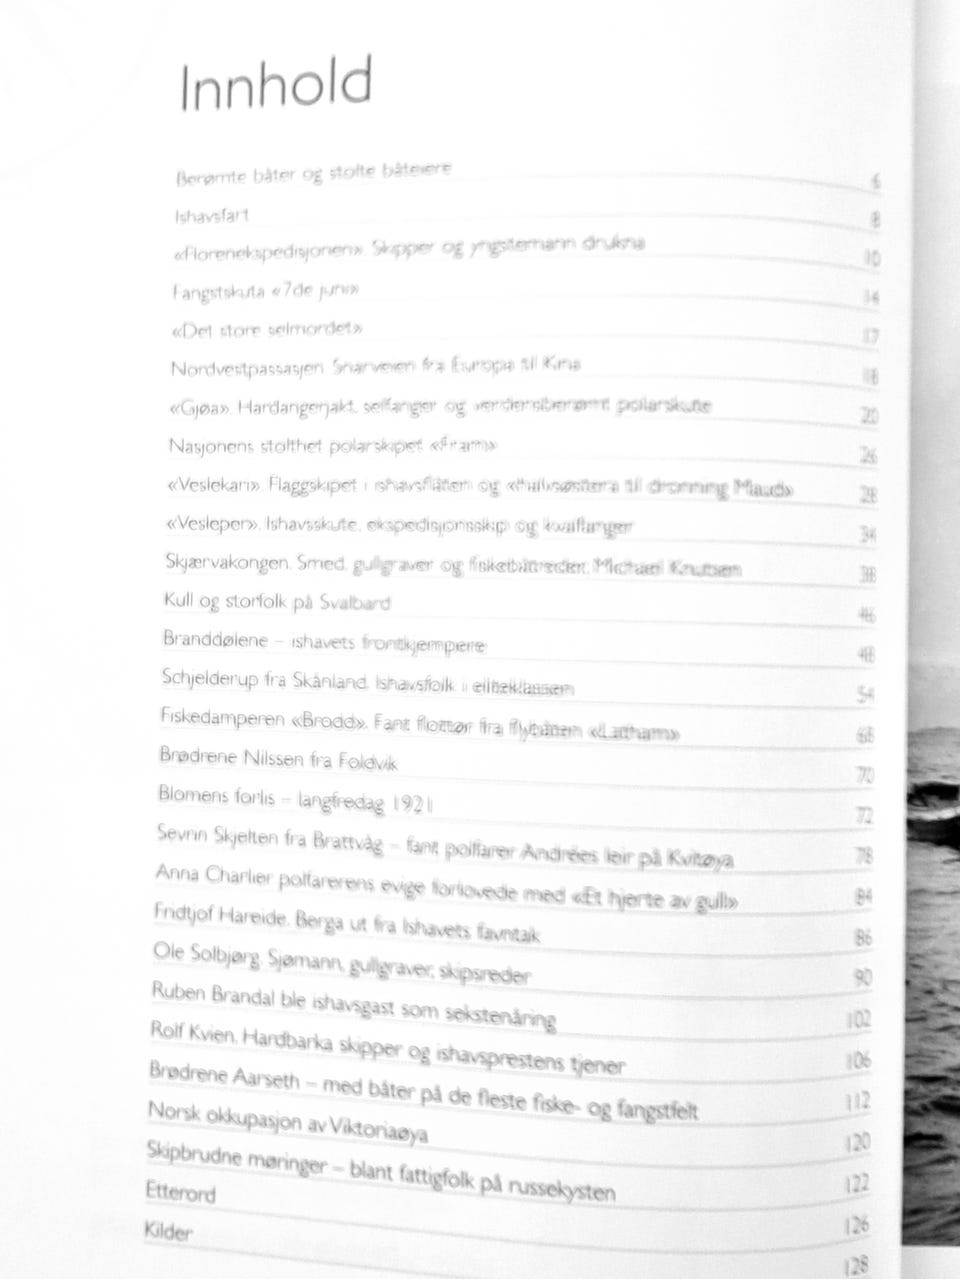 Innhold
Berømte båter og stolte båteiere 6
Ishavsfart 8
«Florenekspedisjonen». Skipper og yngstemann drukna 10
Fangstskuta «7de juni» 14
«Det store selmordet» 17
Nordvestpassasjen. Snarveien fra Europa til Kina 18
«Gjøa». Hardangerjakt, selfanger og verdensberømt polarskute 20
Nasjonens stolthet polarskipet «Fram» 26
«Veslekari». Flaggskipet i ishavsflåten og «halvsøster» til dronning Maud» 28
«Vesleper». Ishavsskute, ekspedisjonsskip og kvalfanger 34
Skjærvakongen. Smed, gullgraver og fiskebåtreder, Michael Knutsen 38
Kull og storfolk på Svalbard 46
Branddølene – ishavets frontkjempere 48
Schjelderup fra Skånland. Ishavsfolk i eliteklassen 54
Fiskedamperen «Brodd». Fant flottør fra flybåten «Latham» 68
Brødrene Nilssen fra Foldvik 70
Blomens forlis – langfredag 1921 72
Sevrin Skjelten fra Brattvåg – fant polfarer Andrées leir på Kvitøya 78
Anna Charlier polfarerens evige forlovede med «Et hjerte av gull» 84
Fridtjof Hareide. Berga ut fra Ishavets favntak 86
Ole Solbjørg. Sjømann, gullgraver, skipsreder 90
Ruben Brandal ble ishavsgast som sekstenåring 102
Rolf Kvien. Hardbarka skipper og ishavsprestens tjener 106
Brødrene Aarseth – med båter på de fleste fiske- og fangstfelt 112
Norsk okkupasjon av Viktoriaøya 120
Skipbrudne møringer – blant fattigfolk på russekysten 122
Etterord 126
Kilder 128